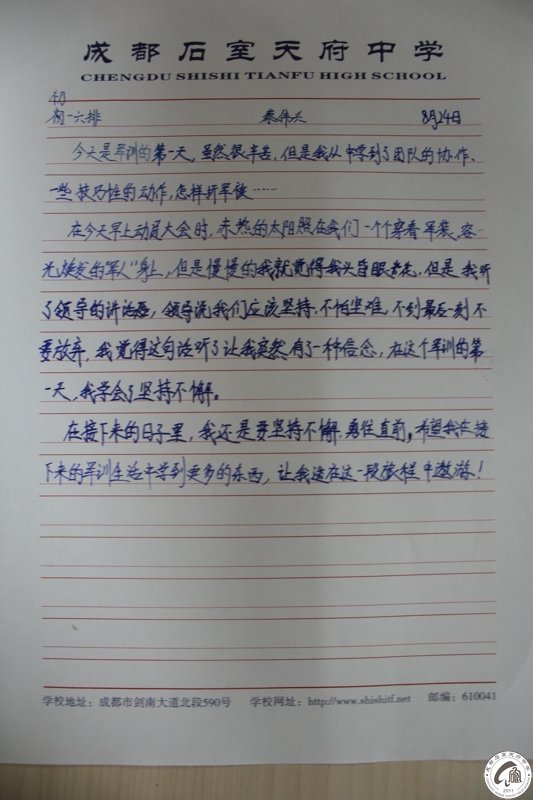 成都石室天府中学
CHENGDU SHISHI TIANFU HIGH SCHOOL
初
初一六排 蔡伟兴 8月24日
今天是军训的第一天，虽然很辛苦，但是我从中学到了团队的协作、
一些技巧性的动作，怎样折军被……
在今天早上动员大会时，赤热的太阳照在我们一个个穿着军装、容
光焕发的"军人"身上，但是慢慢的我就觉得我头昏眼，但是我听
了领导的讲话，领导说我们应该坚持，不怕坚难，不到最后一刻不
要放弃，我觉得这句话听了让我突然有了一种信念，在这个军训的第
一天，我学会了坚持不懈。
在接下来的日子里，我还是要坚持不懈，勇往直前。希望我在接
下来的军训生活中学到更多的东西，让我在这一段旅程中遨游！
学校地址：成都市剑南大道北段590号 学校网址：http://www.shishitf.net 邮编：610041
2011